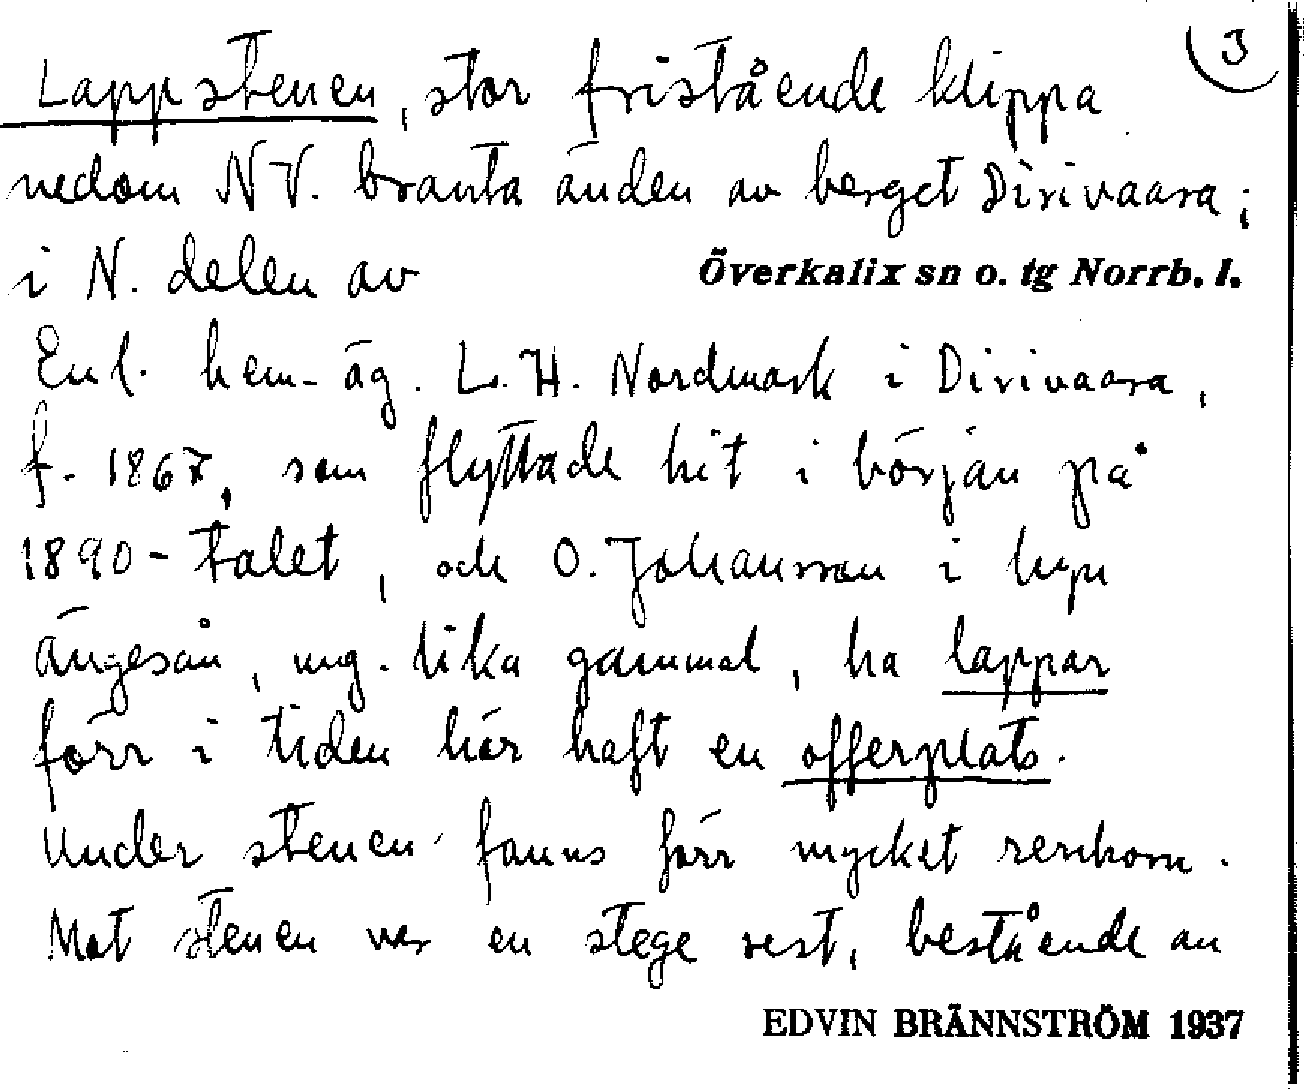 3
Lappstenen, stor fristående klippa
nedom NV. branta änden av berget Dirivaara;
i N. delen av Överkalix sn o. tg Norrb. l.
Enl. hem-äg. L. H. Nordmark i Dirivaara,
f. 1867, som flyttade hit i början på
1890-talet, och O. Johansson i byn
Ängesån, ung. lika gammal, ha lappar
förr i tiden här haft en offerplats.
Under stenen fanns förr mycket renhorn.
Mot stenen var en stege rest, bestående av
EDVIN BRÄNNSTRÖM 1937